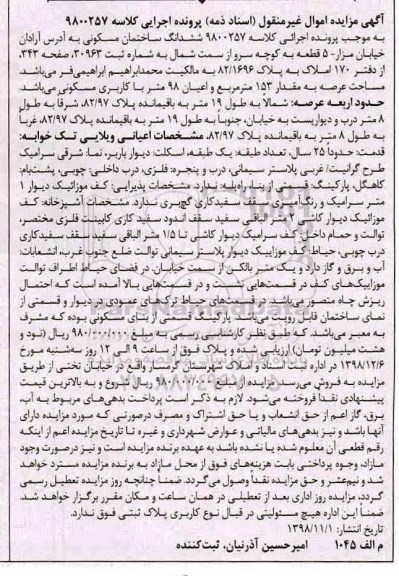 آگهی مزایده اموال غیرمنقول (اسناد ذمه) پرونده اجرایی کلاسه ۹۸۰۰۲۵۷
به موجب پرونده اجرائی کلاسه ۹۸۰۰۲۵۷ ششدانگ ساختمان مسکونی به آدرس آرادان
خیابان مزار- ۵ قطعه به کوچه سرو از سمت شمال به شماره ثبت ۳۰۹۶۳، صفحه ۳۴۳،
از دفتر ۱۷۰ املاک به پلاک ۸۲/۱۶۹۶ به مالکیت محمدابراهیم ابراهیمی‌فر می‌باشد.
مساحت عرصه به مقدار ۱۵۳ مترمربع و اعیان ۹۸ متر با کاربری مسکونی می‌باشد.
حدود اربعه عرصه: شمالا به طول ۱۹ متر به باقیمانده پلاک ۸۲/۹۷، شرقا به طول
۸ متر درب و دیواریست به خیابان، جنوباً به طول ۱۹ متر به باقیمانده پلاک ۸۲/۹۷، غرباً
به طول ۸ متر به باقیمانده پلاک ۸۲/۹۷، مشخصات اعیانی ویلایی تک خوابه:
قدمت: حدوداً ۲۵ سال، تعداد طبقه: یک طبقه، اسکلت: دیوار باربر، نما: شرقی سرامیک
طرح گرانیت/ غربی پلاستر سیمانی، درب و پنجره: فلزی، درب داخلی: چوبی، پشت‌بام:
کاهگل، پارکینگ: قسمتی از بنا، راه‌پله: ندارد، مشخصات پذیرایی: کف موزائیک دیوار ۱
متر سرامیک و رنگ‌آمیزی سقف سفیدکاری گچبری ندارد. مشخصات آشپزخانه: کف
موزائیک دیوار کاشی ۲ متر الباقی سفید سقف اندود سفید کاری کابینت فلزی مختصر،
توالت و حمام داخل کف سرامیک دیوار کاشی تا ۱/۵ متر الباقی سفید سقف سفیدکاری
درب چوبی، حیاط: کف موزاییک دیوار پلاستر سیمانی توالت ضلع جنوب غرب، انشعابات:
آب و برق و گاز دارد و یک متر بالکن از سمت خیابان. در فضای حیاط اطراف توالت
موزاییک‌های کف در قسمت‌هایی نشست و در قسمت‌هایی بالا آمده است که احتمال
ریزش چاه متصور می‌باشد. در قسمت‌های حیاط ترک‌های عمودی در دیوار و قسمتی از
نمای ساختمان قابل رویت می‌باشد. پارکینگ قسمتی از بنای مسکونی بوده که مشرف
به معبر می‌باشد. که طبق نظر کارشناسی رسمی به مبلغ ۹۸۰/۰۰۰/۰۰۰ ریال (نود و
هشت میلیون تومان) ارزیابی شده و پلاک فوق از ساعت ۹ الی ۱۲ روز سه‌شنبه مورخ
۱۳۹۸/۱۲/۶ در اداره ثبت اسناد و املاک شهرستان گرمسار واقع در خیابان تختی از طریق
مزایده به فروش می‌رسد. مزایده از مبلغ ۹۸۰/۰۰۰/۰۰۰ ریال شروع و به بالاترین قیمت
پیشنهادی نقدا فروخته می‌شود. لازم به ذکر است پرداخت بدهی‌های مربوط به آب،
برق، گاز اعم از حق انشعاب و یا حق اشتراک و مصرف درصورتی که مورد مزایده دارای
آنها باشد و نیز بدهی‌های مالیاتی و عوارض شهرداری و غیره تا تاریخ مزایده اعم از اینکه
رقم قطعی آن معلوم شده یا نشده باشد به عهده برنده مزایده است و نیز درصورت وجود
مازاد، وجوه پرداختی بابت هزینه‌های فوق از محل مازاد به برنده مزایده مسترد خواهد
شد و نیم‌عشر و حق مزایده نقداً وصول می‌گردد. ضمناً چنانچه روز مزایده تعطیل رسمی
گردد، مزایده روز اداری بعد از تعطیلی در همان ساعت و مکان مقرر برگزار خواهد شد.
ضمناً این اداره هیچ مسئولیتی در قبال نوع کاربری پلاک ثبتی فوق ندارد.
تاریخ انتشار: ۱۳۹۸/۱۱/۱
م الف ۱۰۴۵ امیرحسین آذرنیان، ثبت‌کننده